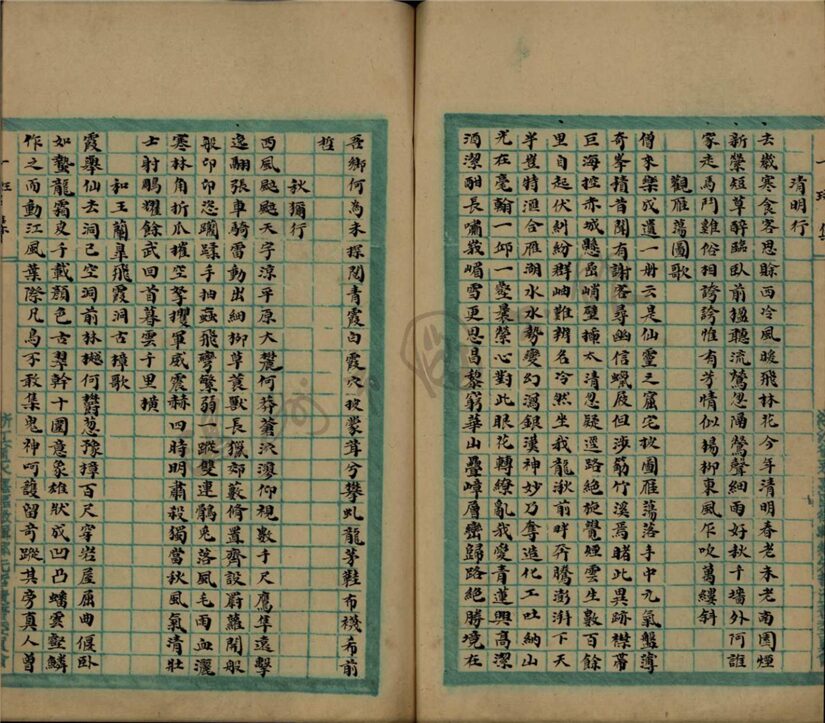 清明行
去歲寒食客思賒西冷風暖飛林花今年清明春老未老南園煙
新縈短草醉臨臥前搵聽流鶯忽隔鶯聲細雨好秋千墻外何誰
家走馬鬥雞俗相誇誇惟有芳情似楊柳東風乍吹萬縷斜
觀雁蕩圖歌
僧來樂成遺一册云是仙靈之窟宅披圖雁蕩落手中九氣盤薄
奇峯積昔聞有謝客尋幽信蠟屐但涉筋竹溪焉睹此異跡襟帶
巨海控赤城懸嵒峭壁撞太清忽疑逕路絕旋覺煙雲生數百餘
里自起伏糾紛群岫難辨名冷然坐我龍湫前畔奔騰澎湃下天
半豈特滙合雁湖水水勢變幻瀉銀漢神妙乃奪造化工吐納山
光在毫翰一邱一壑縈心對此眼花轉繚亂我愛青蓮興高潔
酒潔酣長嘯峩嵋雪更思昌黎窮華山疊嶂層巒歸路絕勝境在
吾鄉何為未探閱青霞白霞穴披蒙茸兮攀虬龍茅鞋布襪布前
哲
秋獮行
西風颭颭天字淳平原大麓何莽蒼泬漻仰視數千尺鷹隼遠擊
逸翮張車騎雷動出細柳草萇獸長獵郊藪脩置齊設罻蘿開般
般卬卬恣蹴蹂手抽蝱飛彎繁弱一蹤雙連鶻兔落風毛雨血灑
寒林角折爪摧空拏攫軍威震赫四時明肅殺獨當秋風氣清壯
士射鵰耀餘武回首暮雲千里橫
和王蘭皐飛霞洞古樟歌
霞舉仙去洞已空洞前林樾何鬱葱豫樟百尺穿岩屋屈曲偃臥
如蟄龍霜皮千載顏色古翠幹十圍意象雄狀成凹凸蟠雲壑鱗
作之而動江風葉際凡鳥不敢集鬼神呵護留奇蹤其旁真人曾